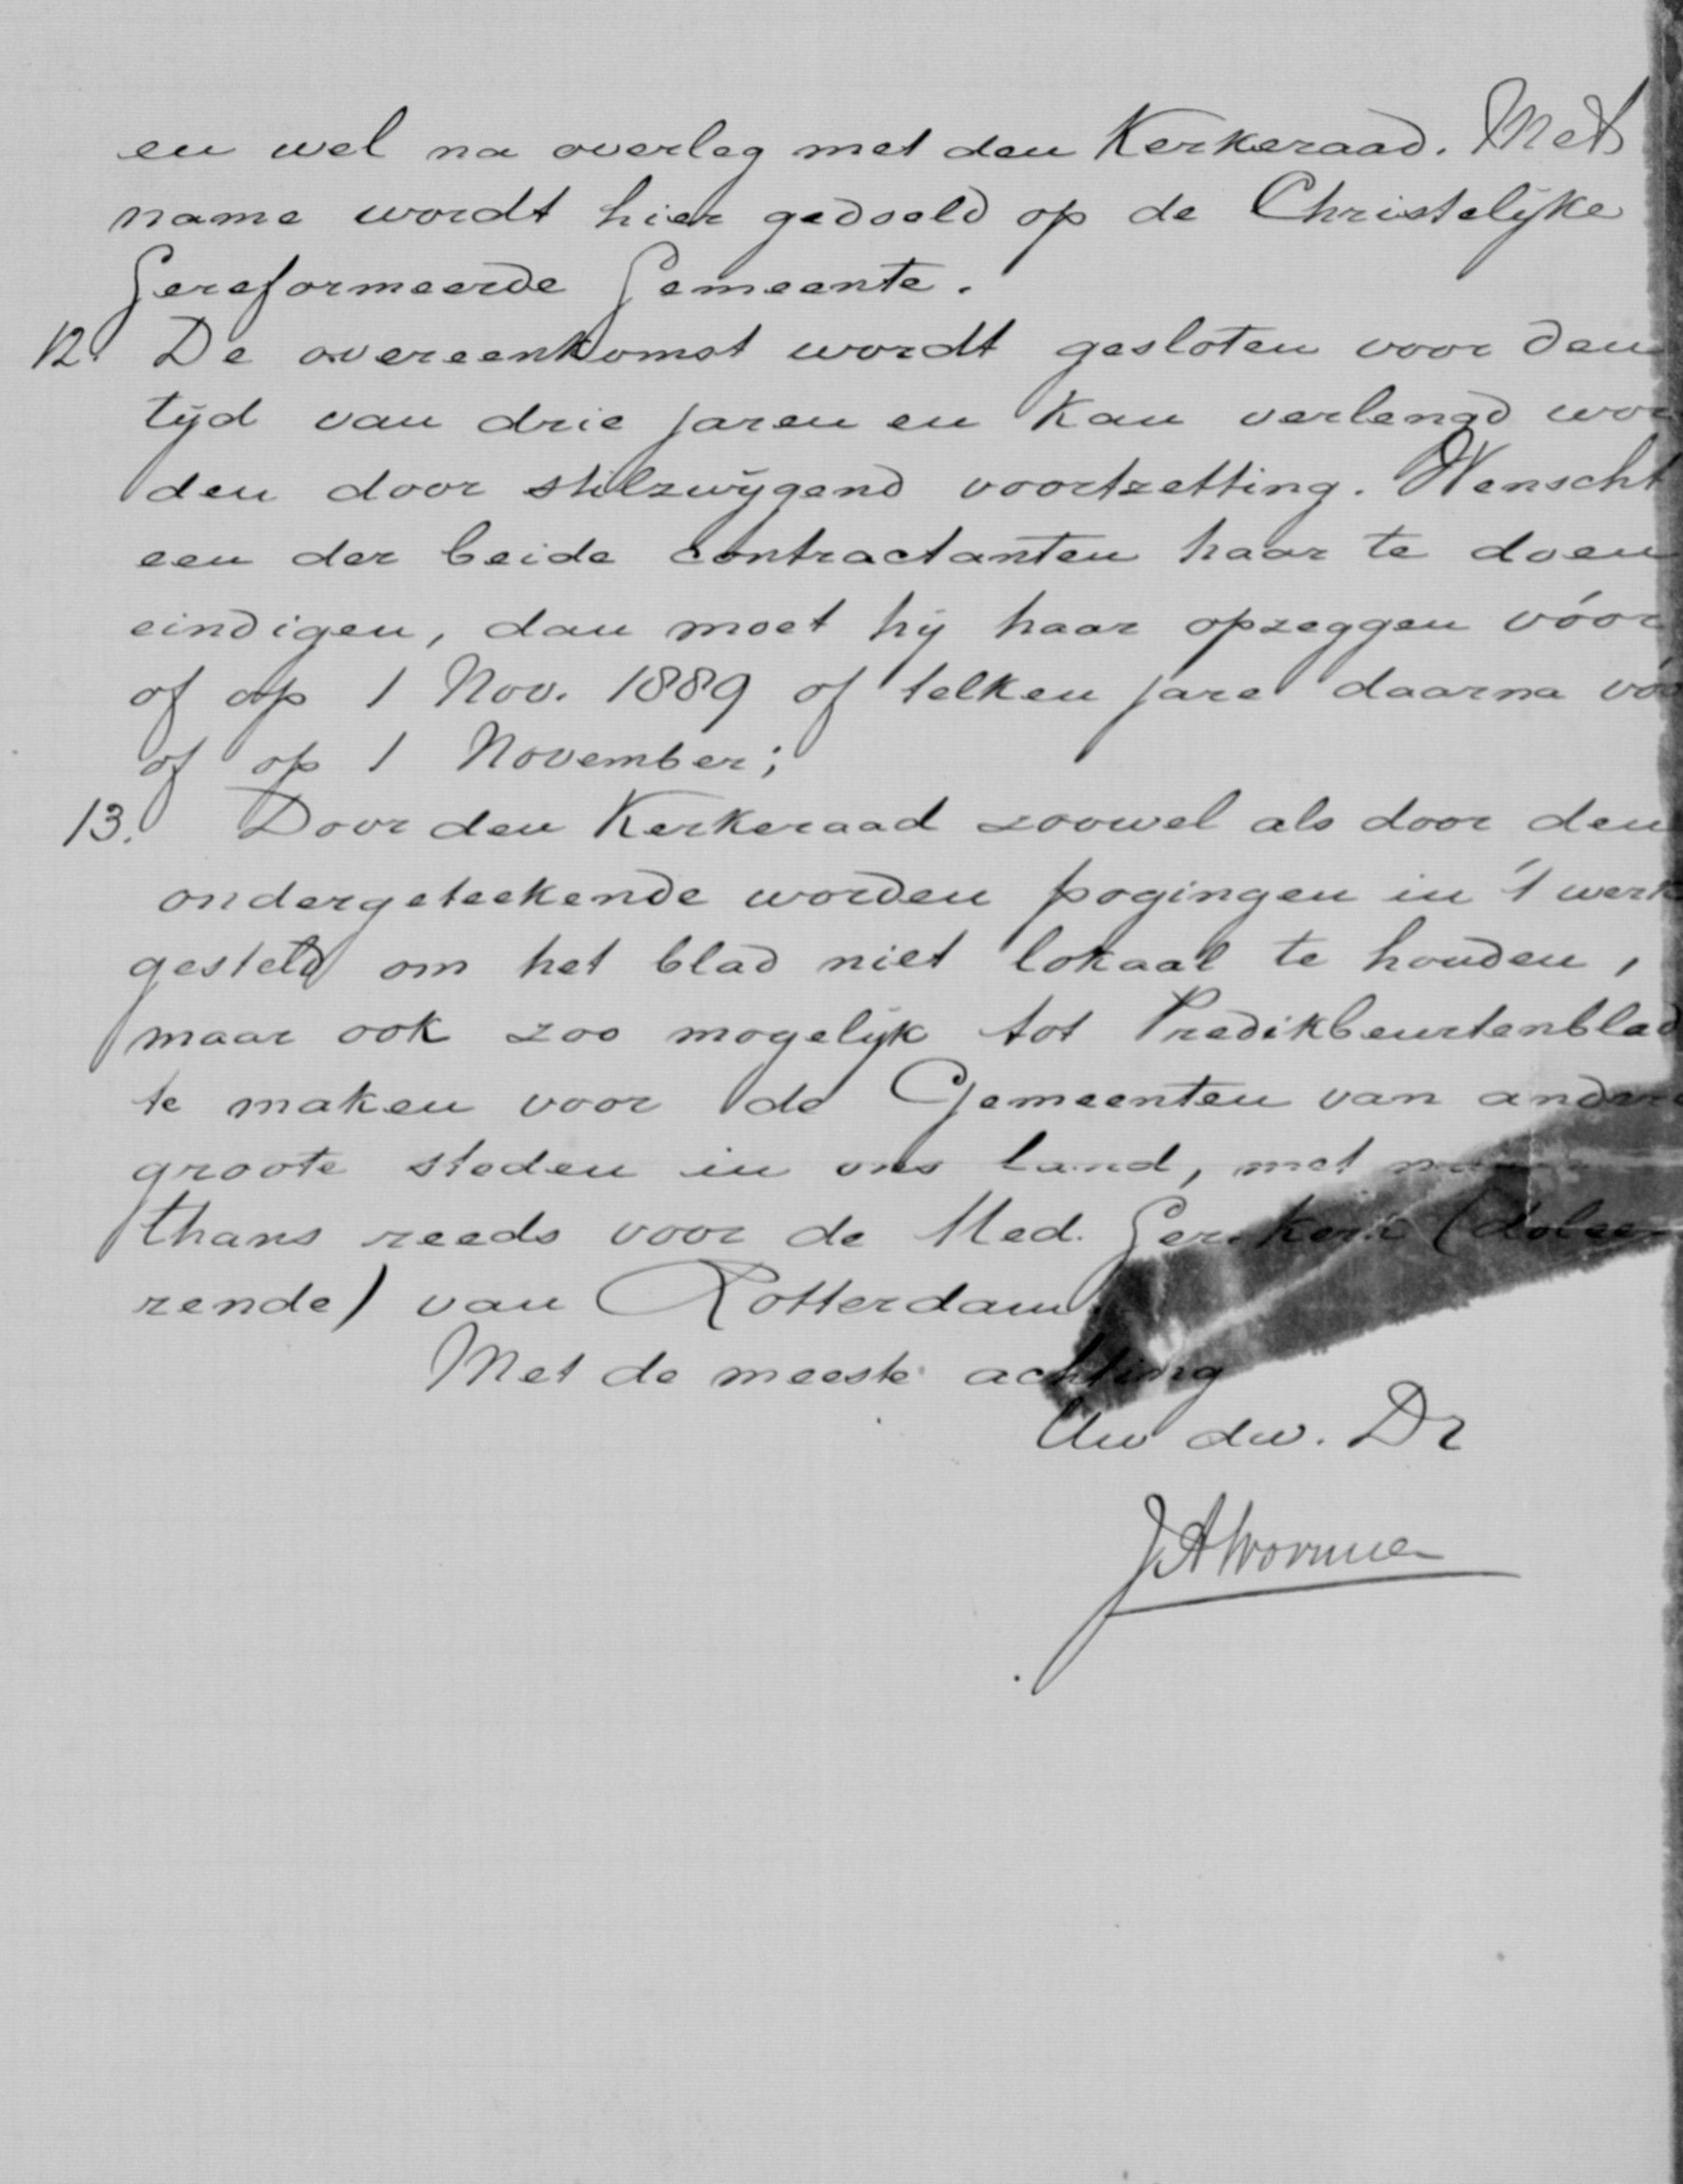 en wel na overleg met den Kerkeraad. Met
name wordt hier gedoeld op de Christelijke
Gereformeerde Gemeente.
12. De overeenkomst wordt gesloten voor den
tijd van drie jaren en kan verlengd wor
den door stilzwijgend voortzetting. Wenscht
een der beide contractanten haar te doen
eindigen, dan moet hij haar opzeggen vóór
of op 1 Nov. 1889 of telken jare daarna vóó
of op 1 November;
13. Door den Kerkeraad zoowel als door den
ondergeteekende worden pogingen in 't werk
gesteld om het blad niet lokaal te houden,
maar ook zoo mogelijk tot Predikbeurtenblad
te maken voor de Gemeenten van andere
groote steden in ons land, met
thans reeds voor de Ned. Ger. kerk (dolee-
rende) van Rotterdam.
Met de meeste achting
Uw dw. Dr
JAWormser